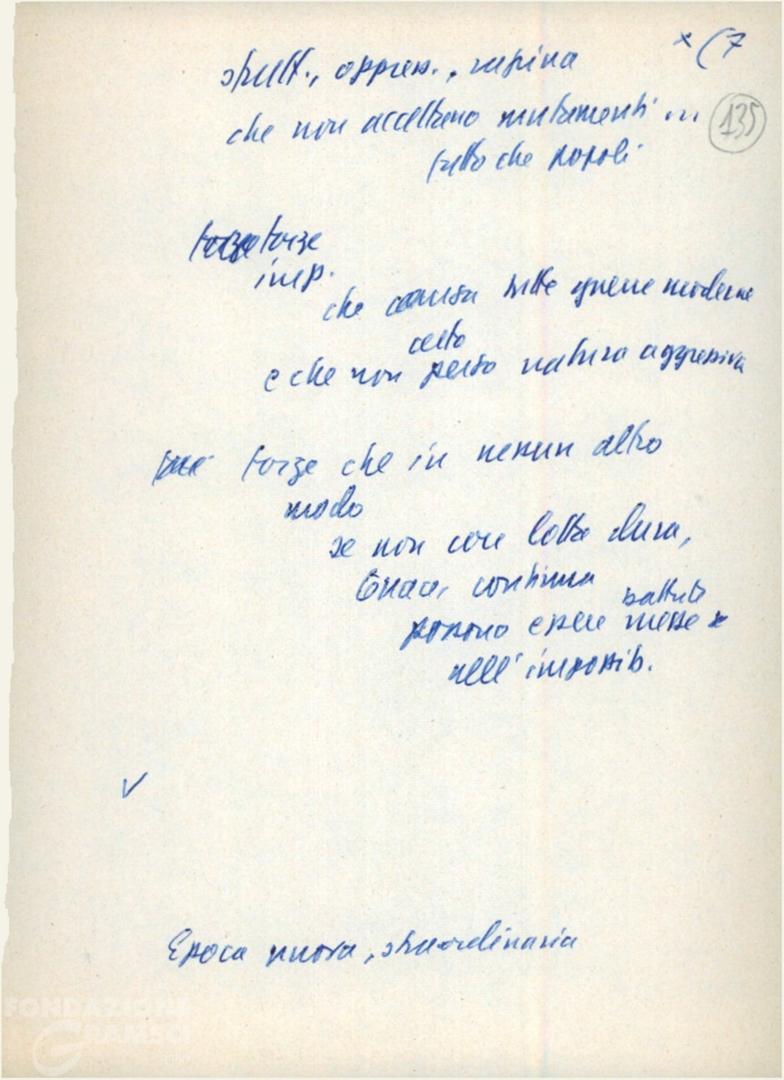 × (7
sfrutt., oppress., rapina
che non accettano mutamenti in
135
fatto che popoli
forze forze
imp.
che causa tutte guerre moderne
certo
e che non perso natura aggressiva
forze che in nessun altro
modo
se non con lotta dura,
tenace, continua
battute
possono essere messe
nell'impossib.
✓
Epoca nuova, straordinaria
FONDAZIONE
GRAMSCI